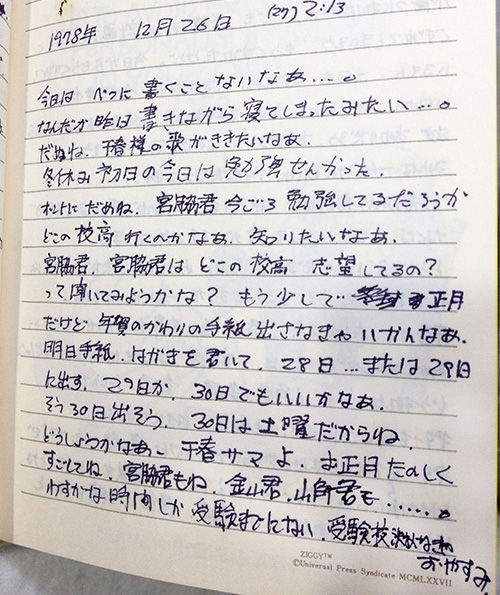 1978年 12月26日 (27) 2:13
今日は べつに 書くこと ないなあ…。
なんだか 昨日は 書きながら 寝てしまったみたい…。
だめね. 千春様の 歌が ききたいなあ.
冬休み 初日の 今日は 勉強せんかった.
ホントに だめね. 宮脇君 今ごろ 勉強してるだろうか
どこの 校高 行くのかなあ. 知りたいなあ.
宮脇君. 宮脇君は どこの 校高 志望してるの?
って聞いてみようかな? もう少しで お正月
だけど 年賀のかわりの 手紙 出さなきゃ いかんなあ.
明日手紙. はがきを 書いて. 28日…または 29日
に出す. 29日か. 30日でもいいかなあ.
そう 30日 出そう. 30日は 土曜だからね.
どうしようかなあ~ 千春サマよ. お正月 たのしく
すごしてね. 宮脇君もね. 金山君. 山角君も……。
わずかな 時間しか 受験までにない. 受験校
おやすみ.
ZIGGY™
©Universal Press Syndicate MCMLXXVII